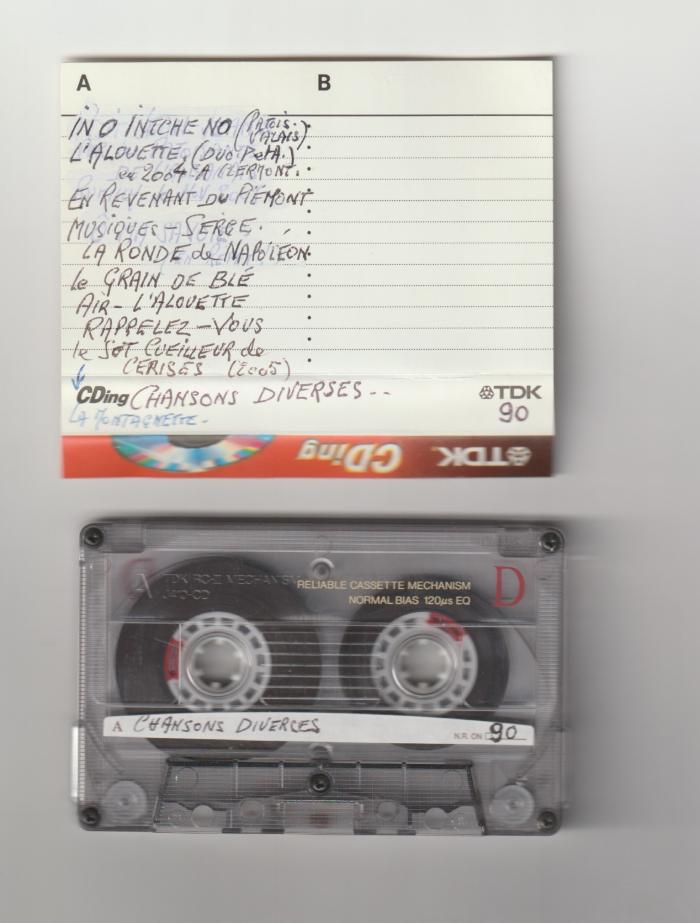 A B
IN O INTCHE NO (PATOIS.
VALAIS)
L'ALOUETTE, (DUO P et A.)
en 2004 A CLERMONT.
EN REVENANT DU PIEMONT
MUSIQUES - SERGE.
LA RONDE de NAPOLEON
Le GRAIN DE BLÉ
AIR - L'ALOUETTE
RAPPELEZ - VOUS
le SOT CUEILLEUR de
CERISES (2005)
CDing CHANSONS DIVERSES.. TDK
LA MONTAGNETTE. 90
TDK CDing
A TDK RC-II MECHANISM RELIABLE CASSETTE MECHANISM D
NORMAL BIAS 120µs EQ
A CHANSONS DIVERCES N.R. ON 90